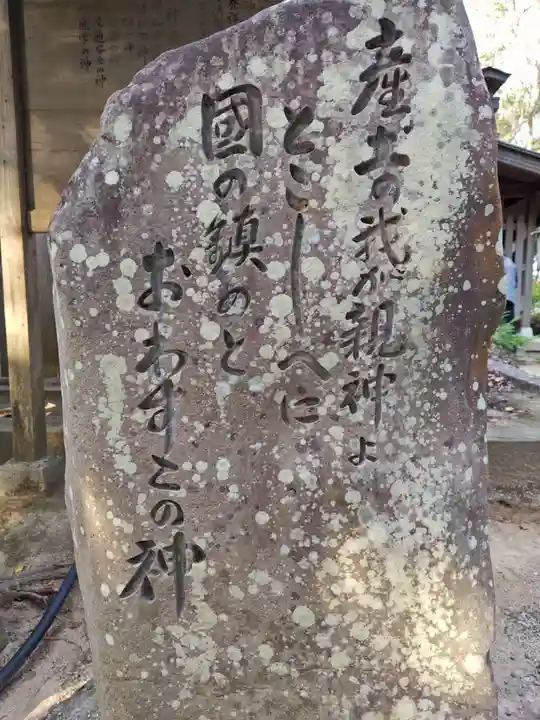 産土の我が親神よ
とこしへに
國の鎮めと
おわすこの神